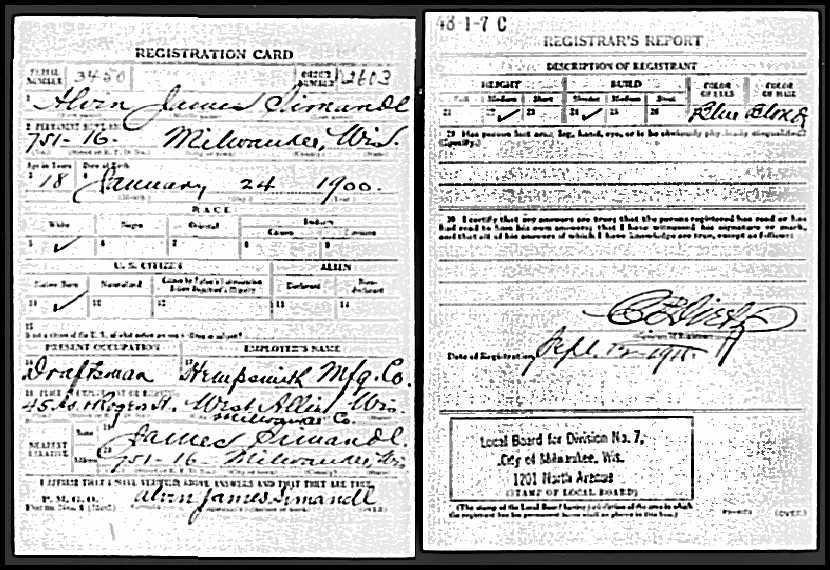 REGISTRATION CARD
SERIAL NUMBER 3450 ORDER NUMBER 2603
1 Alvin James Simandl
2 PERMANENT HOME ADDRESS:
751-16- Milwaukee, Wis.
Age in Years Date of Birth
3 18 4 January 24 1900.
RACE
White Negro Oriental Indian
Citizen Noncitizen
5 ✓ 6 7 8 9
U. S. CITIZEN ALIEN
Native Born Naturalized Citizen by Father's Naturalization Before Registrant's Majority Declarant Non-declarant
10 ✓ 11 12 13 14
15
If not a citizen of the U. S., of what nation are you a citizen or subject?
PRESENT OCCUPATION EMPLOYER'S NAME
16 Draftsman 17 Hempsmith Mfg. Co.
18 PLACE OF EMPLOYMENT OR BUSINESS:
West Allis Wis.
Milwaukee Co.
NEAREST RELATIVE
Name 19 James Simandl.
Address 20 751-16- Milwaukee Wis
I AFFIRM THAT I HAVE VERIFIED ABOVE ANSWERS AND THAT THEY ARE TRUE
P. M. G. O.
Form No. 1 (Red) Alvin James Simandl (OVER)
48-1-7 C
REGISTRAR'S REPORT
DESCRIPTION OF REGISTRANT
HEIGHT BUILD COLOR OF EYES COLOR OF HAIR
Tall Medium Short Slender Medium Stout
21 22 ✓ 23 24 ✓ 25 26 Blue Blond
29 Has person lost arm, leg, hand, eye, or is he obviously physically disqualified?
(Specify.)
30 I certify that my answers are true; that the person registered has read or has
had read to him his own answers; that I have witnessed his signature or mark,
and that all of his answers of which I have knowledge are true, except as follows:
Date of Registration Sept. 12-1918
Local Board for Division No. 7,
City of Milwaukee, Wis.
1201 North Avenue
(STAMP OF LOCAL BOARD)
(The stamp of the Local Board having jurisdiction of the area in which
the registrant has his permanent home shall be placed in this box.)
(OVER)